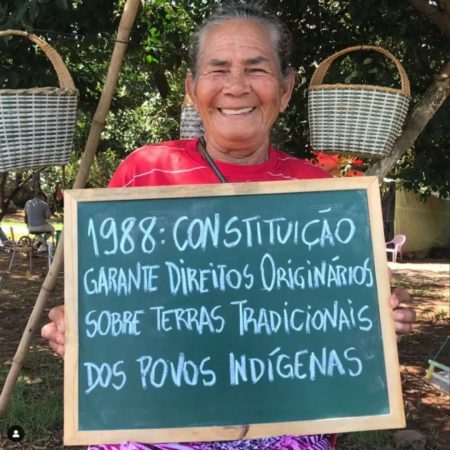 1988: CONSTITUIÇÃO
GARANTE DIREITOS ORIGINÁRIOS
SOBRE TERRAS TRADICIONAIS
DOS POVOS INDÍGENAS